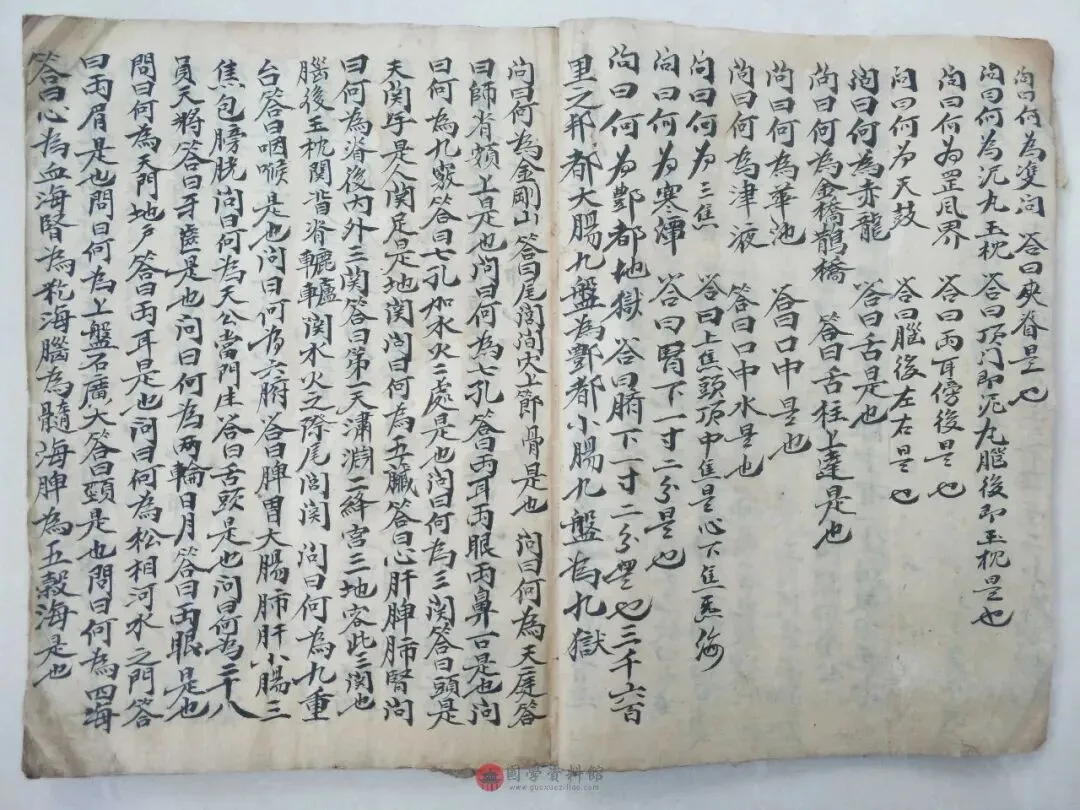 问曰何為雙问 答曰夾脊是也
问曰何為泥丸玉枕 答曰顶门即泥丸腦後即玉枕是也
问曰何為罡風界 答曰両耳傍後是也
问曰何为天鼓 答曰腦後左右是也
问曰何為赤龍 答曰舌是也
问曰何為金橋鵲橋 答曰舌柱上達是也
问曰何為華池 答曰口中是也
问曰何為津液 答曰口中水是也
问曰何为三焦 答曰上焦頭頂中焦是心下焦
问曰何为寒潭 答曰腎下一寸二分是也
问曰何为酆都地獄 答曰臍下一寸二分是也三千六百
里之邦都大腸九盤為酆都小腸九盤為九獄
问曰何為金剛山 答曰尾閭间大上節骨是也 问曰何為天庭答
曰師眷額上是也问曰何為七孔答曰両耳両眼両鼻一口是也问
曰何為九竅答曰七孔加水火二處是也问曰何為三関答曰頭是
天関手是人関足是地関问曰何為五臟答曰心肝脾肺腎问
曰何為脊後內外三関答曰第一天潚淵二絳宮三地客此三関也
腦後玉枕関背脊轆轤関水火之際尾閭関 问曰何為九重
台答曰咽喉是也问曰何为六腑答曰脾胃大腸肺肝小腸三
焦包膀胱问曰何為天公當門生答曰舌頭是也问曰何为二十八
員天將答曰牙齒是也问曰何為两輪日月答曰両眼是也
問曰何為天門地戶答曰両耳是也问曰何為松相河水之門答
曰両眉是也問曰何為上盤石廣大答曰頸是也問曰何為四海
答曰心為血海腎為海腦為髓海脾為五穀海是也
國學資料館
www.guoxueziliao.com